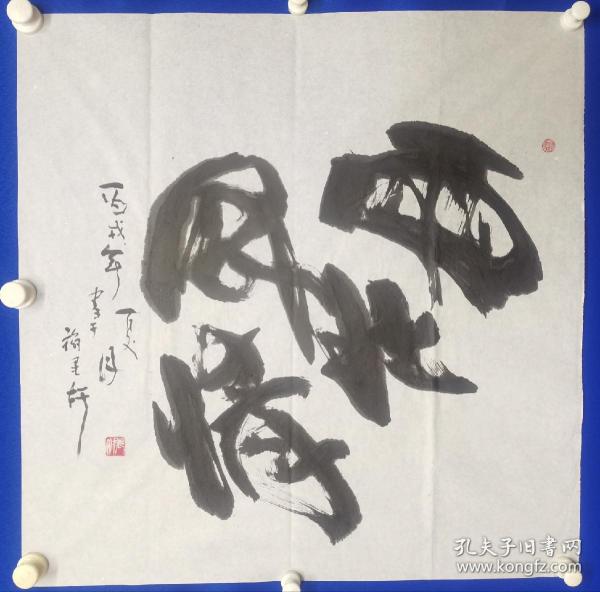 西北
风情
丙戌年夏月
书于
孔夫子旧书网
www.kongfz.com